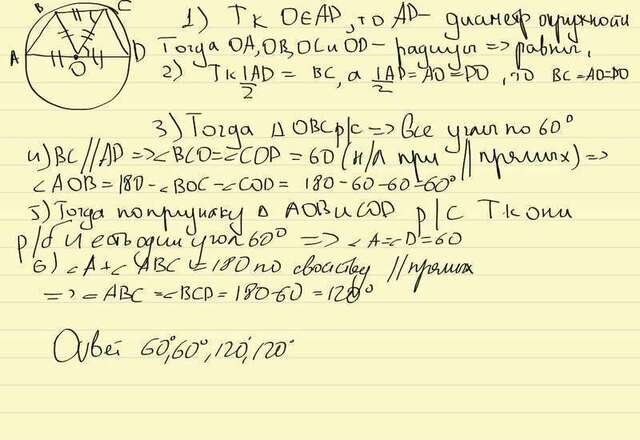 B C
A D
O
1) Тк O∈AD, то AD- диаметр окружности
Тогда OA, OB, OC и OD- радиусы => равны.
2) Тк 1/2 AD = BC, а 1/2 AD = AO = DO, то BC=AO=DO
3) Тогда Δ OBC р/с => все углы по 60°
4) BC // AD => ∠BCO = ∠COD = 60 (н/л при // прямых) =>
∠AOB = 180 - ∠BOC - ∠COD = 180-60-60=60°
5) Тогда по признаку Δ AOB и COD р/с Тк они
р/б и есть один угол 60° => ∠A=∠D=60
6) ∠A+∠ABC = 180 по свойству // прямых
=> ∠ABC = ∠BCD = 180-60 = 120°
Ответ 60°,60°,120°,120°